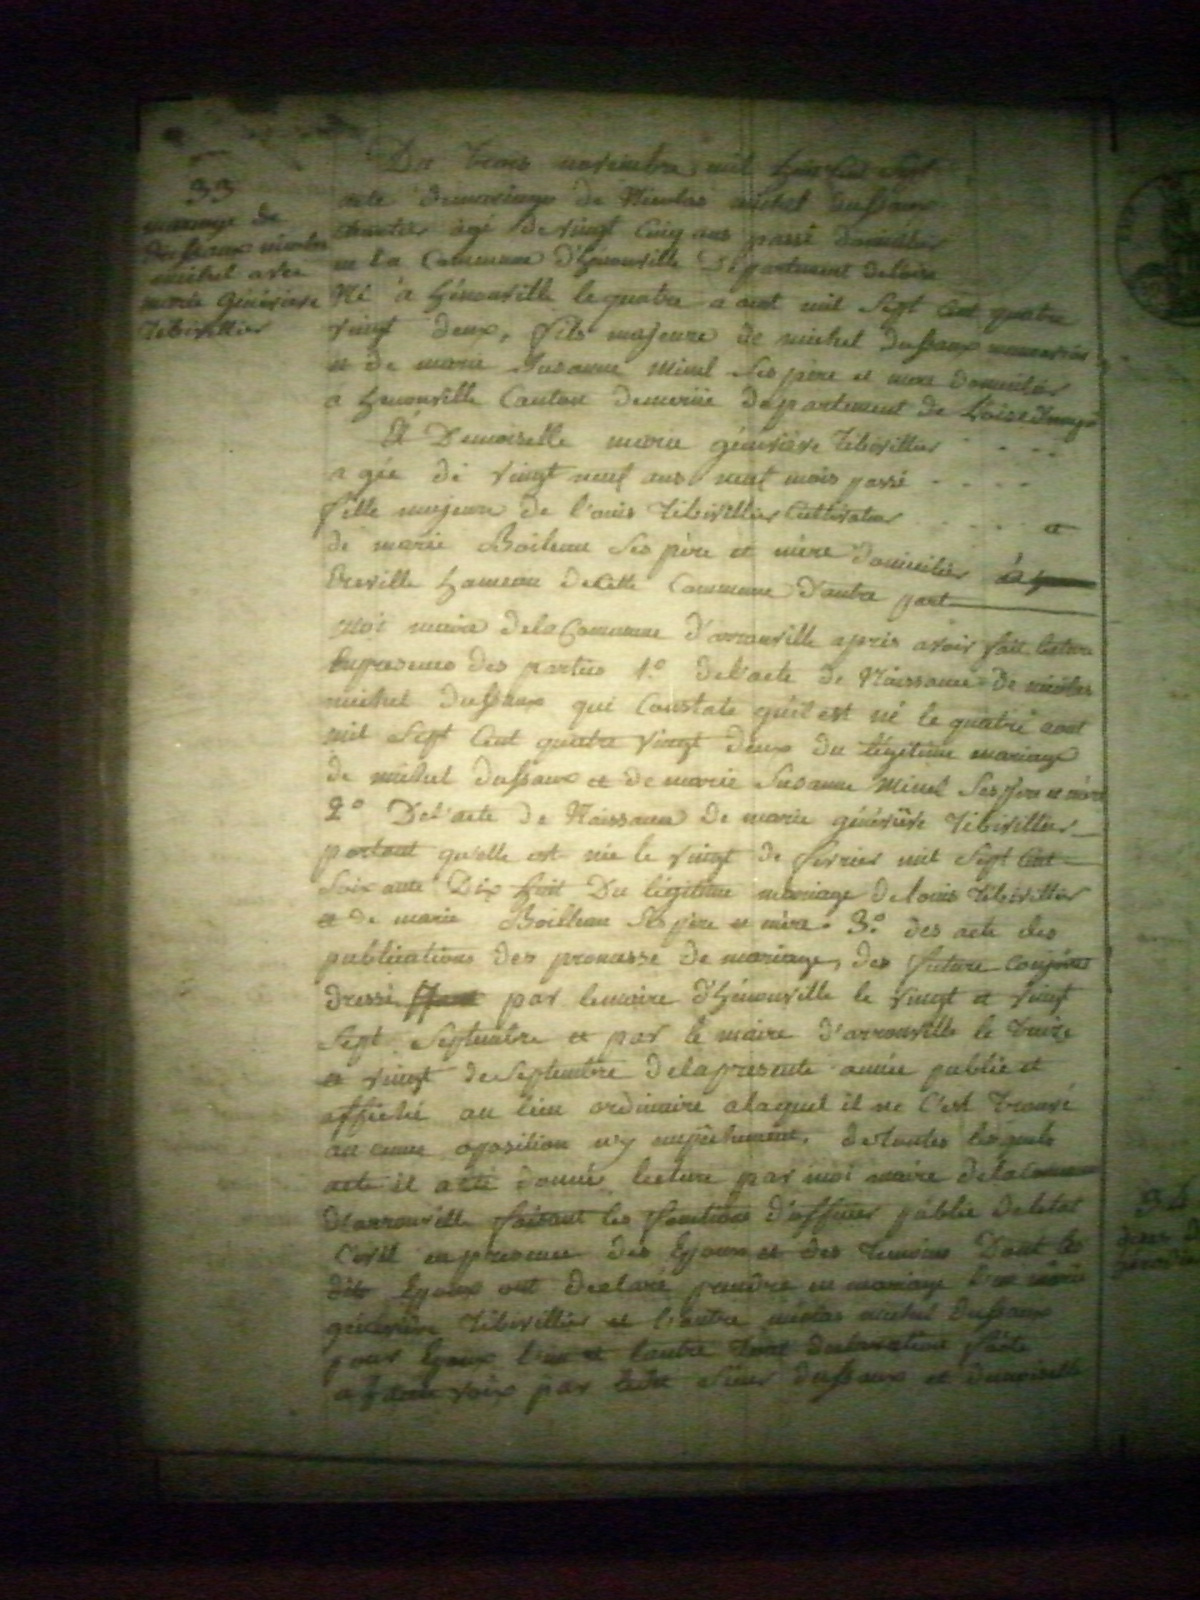 33
mariage de
Dussaux nicolas
michel avec
marie Généviève
Tibivillier
Du trois novembre mil huit cent sept
acte de mariage de Nicolas michel Dussaux
agé de vingt Cinq ans passé domicilié
en la Commune d'hénouville Département de loise
Né à hénouville le quatre aout mil sept Cent quatre
vingt deux, fils majeure de michel Dussaux
et de marie Susanne Minel Ses père et mere domiciliés
a henouville Canton de département de l'oise d'une
Et Demoiselle marie généviève Tibivillier
agée de vingt neuf ans neuf mois passé
fille majeure de l'ouis Tibivillier Cultivateur et
de marie Boileau Ses père et mère domiciliés
Breville hameau de Cette Commune d'autre part
moi maire de la Commune d'arronville après avoir fait lecture
En presence des parties 1.º de l'acte de Naissance de nicolas
michel Dussaux qui Constate quil est né le quatre aout
mil Sept Cent quatre vingt deux du légitime mariage
de michel dussaux et de marie Susanne Minel Ses père et mère
2º De l'acte de Naissance de marie généviève Tibivillier
portant qu'elle est née le vingt de fevrier mil Sept Cent
Soixante Dix huit Du légitime mariage de louis Tibivillier
et de marie Boilleau Ses père et mère. 3.º des acte des
publications des promesse de mariage, des future Conjoins
dressé par le maire d'hénouville le vingt et vingt
Sept Septembre et par le maire d'arronville le treize
et vingt de Septembre de la presente année publié et
affiché au lieu ordinaire alaquel il ne C'est trouvé
au cune oposition ny empêchement, de toutes lesquels
acte il a été donné lecture par moi maire de la Commune
d'arronville faisant les fonctions d'officier public de letat
Civil en presence des Epoux et des temoins Dont les
dits Epoux ont declaré prendre en mariage l'un marie
généviève Tibivillier et l'autre nicolas michel Dussaux
pour Epoux l'un et lautre declaration faite
a haute voix par Sieur dussaux et demoiselle
34